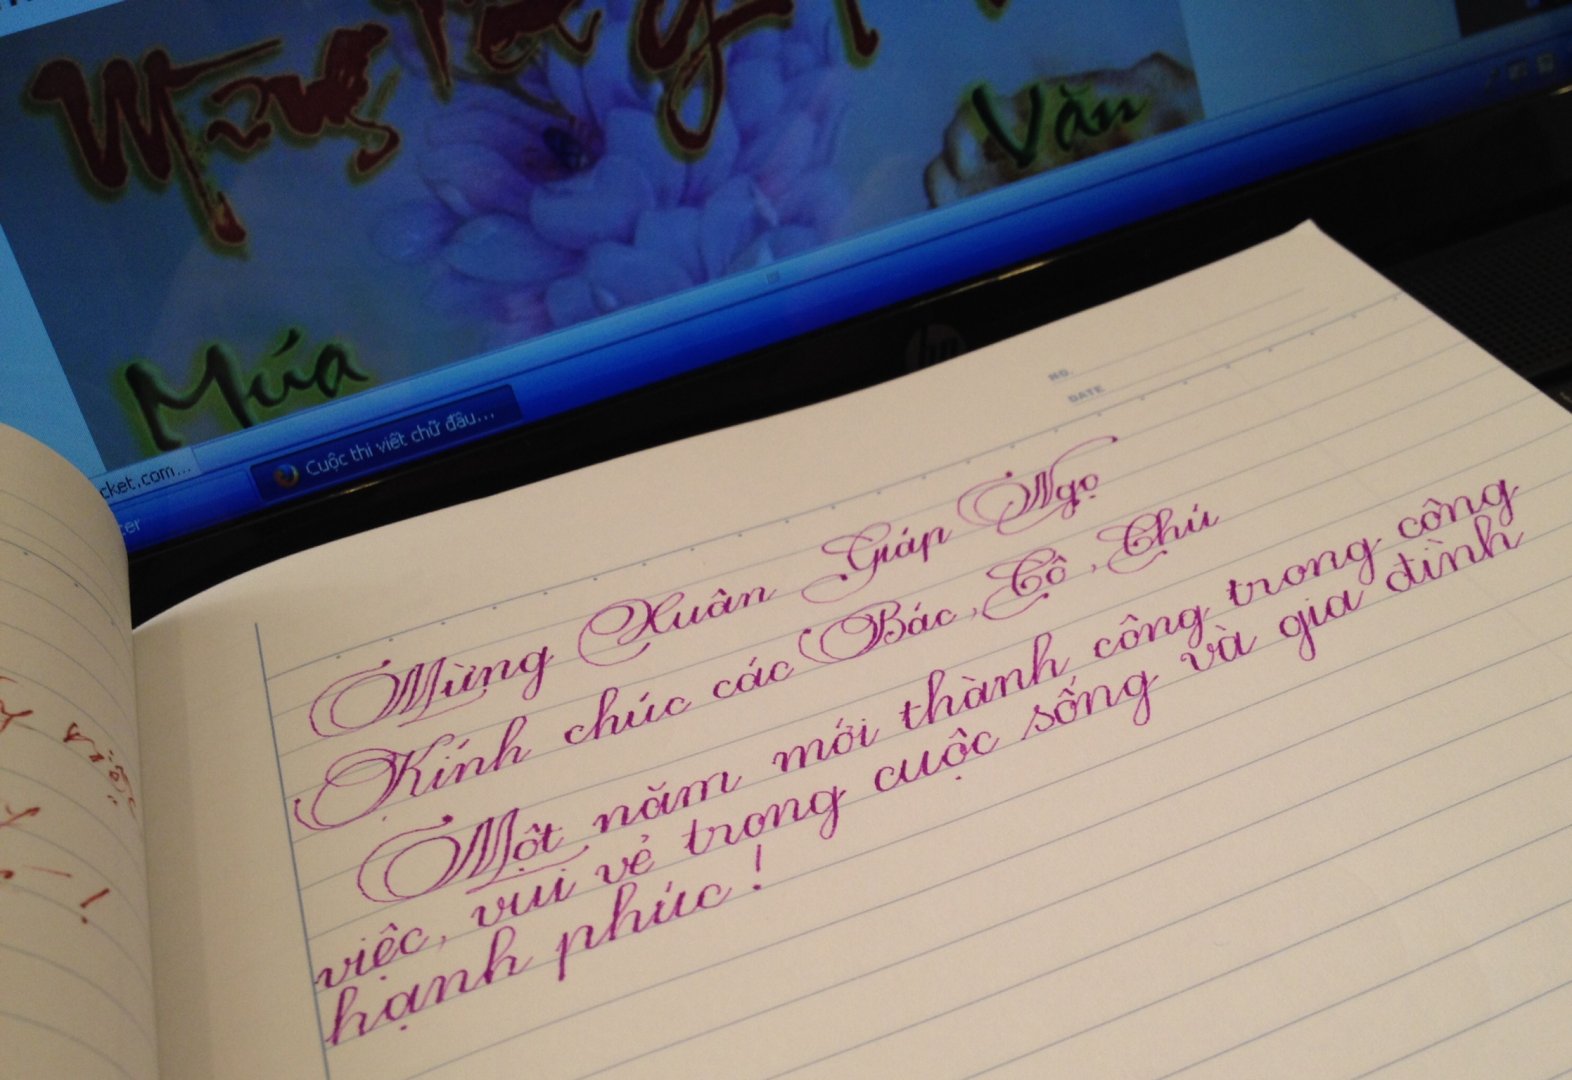 Mừng
Văn
Múa
cket.com...
Cuộc thi viết chữ đầu...
NO.
DATE
Mừng Xuân Giáp Ngọ
Kính chúc các Bác, Cô, Chú
Một năm mới thành công trong công
việc, vui vẻ trong cuộc sống và gia đình
hạnh phúc!
hp